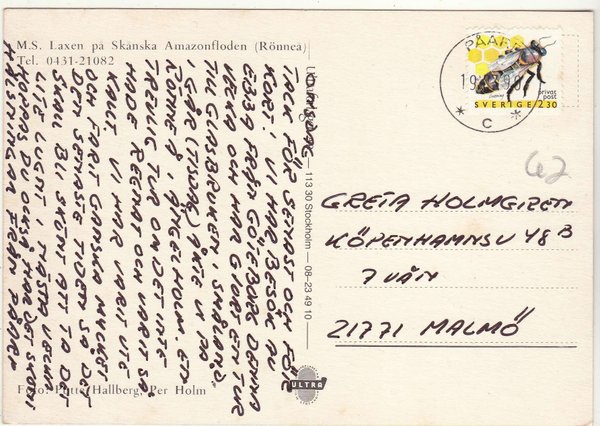 M.S. Laxen på Skånska Amazonfloden (Rönneå)
Tel. 0431-21082
PÅARP
19
90
C
privat
post
SVERIGE 2.30
62
GRETA HOLMGREN
KÖPENHAMNSV 48 B
7 VÅN
21771 MALMÖ
113 30 Stockholm — 08-23 49 10
ULTRA
Foto: Putte Hallberg, Per Holm
ONSDAG
TACK FÖR SENAST OCH FÖR
KORT! VI HAR BESÖK AV
EBBA FRÅN GÖTEBORG DENNA
VECKA OCH HAR GJORT EN TUR
TILL GLASBRUKEN I SMÅLAND.
I GÅR (TISDAG) ÅKTE VI PÅ
RÖNNE Å I ÄNGELHOLM. EN
TREVLIG TUR OM DET INTE
HADE REGNAT OCH VARIT SÅ
KALLT. VI HAR VARIT UTE
OCH FARIT GANSKA MYCKET
DEN SENASTE TIDEN SÅ DET
SKALL BLI SKÖNT ATT TA DET
LITE LUGNT I NÄSTA VECKA
HOPPAS DU OCKSÅ HAR DET SKÖNT
HÄLSNINGAR FRÅN PÅARP